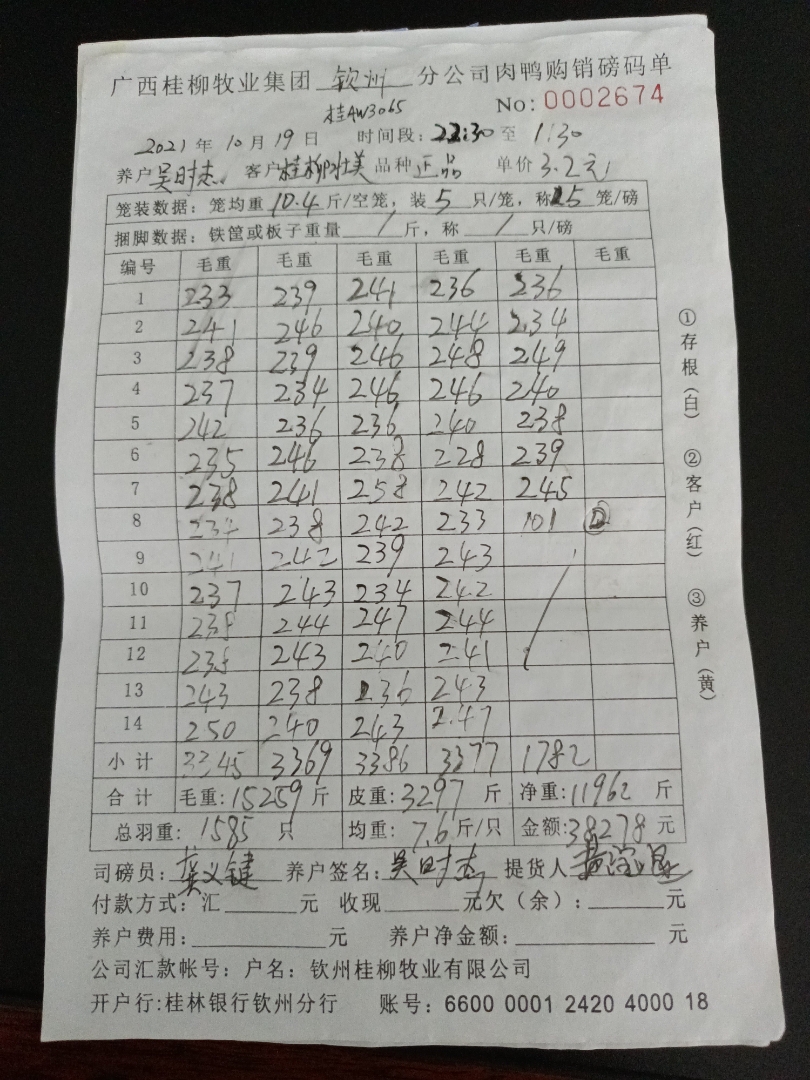 广西桂柳牧业集团 钦州 分公司肉鸭购销磅码单
桂AW3065 No: 0002674
2021年10月19日 时间段: 22:30 至 1:30
养户 吴日杰 客户 桂柳壮美 品种 正品 单价 3.2元
笼装数据: 笼均重 10.4 斤/空笼, 装 5 只/笼, 称 5 笼/磅
捆脚数据: 铁筐或板子重量 / 斤, 称 / 只/磅
编号 毛重 毛重 毛重 毛重 毛重 毛重
1 233 239 241 236 236
2 241 246 240 244 234
3 238 239 246 248 249
4 237 234 246 246 240
5 242 236 236 240 238
6 235 246 238 228 239
7 238 241 258 242 245
8 234 238 242 233 101 ②
9 241 242 239 243
10 237 243 234 242
11 238 244 247 244
12 238 243 240 241
13 243 238 236 243
14 250 240 243 247
小计 3345 3369 3386 3377 1782
合计 毛重: 15259 斤 皮重: 3297 斤 净重: 11962 斤
总羽重: 1585 只 均重: 7.6 斤/只 金额: 38278 元
司磅员: 龚义键 养户签名: 吴日杰 提货人
付款方式: 汇 元 收现 元欠(余): 元
养户费用: 元 养户净金额: 元
公司汇款帐号: 户名: 钦州桂柳牧业有限公司
开户行:桂林银行钦州分行 账号: 6600 0001 2420 4000 18
①存根(白) ②客户(红) ③养户(黄)